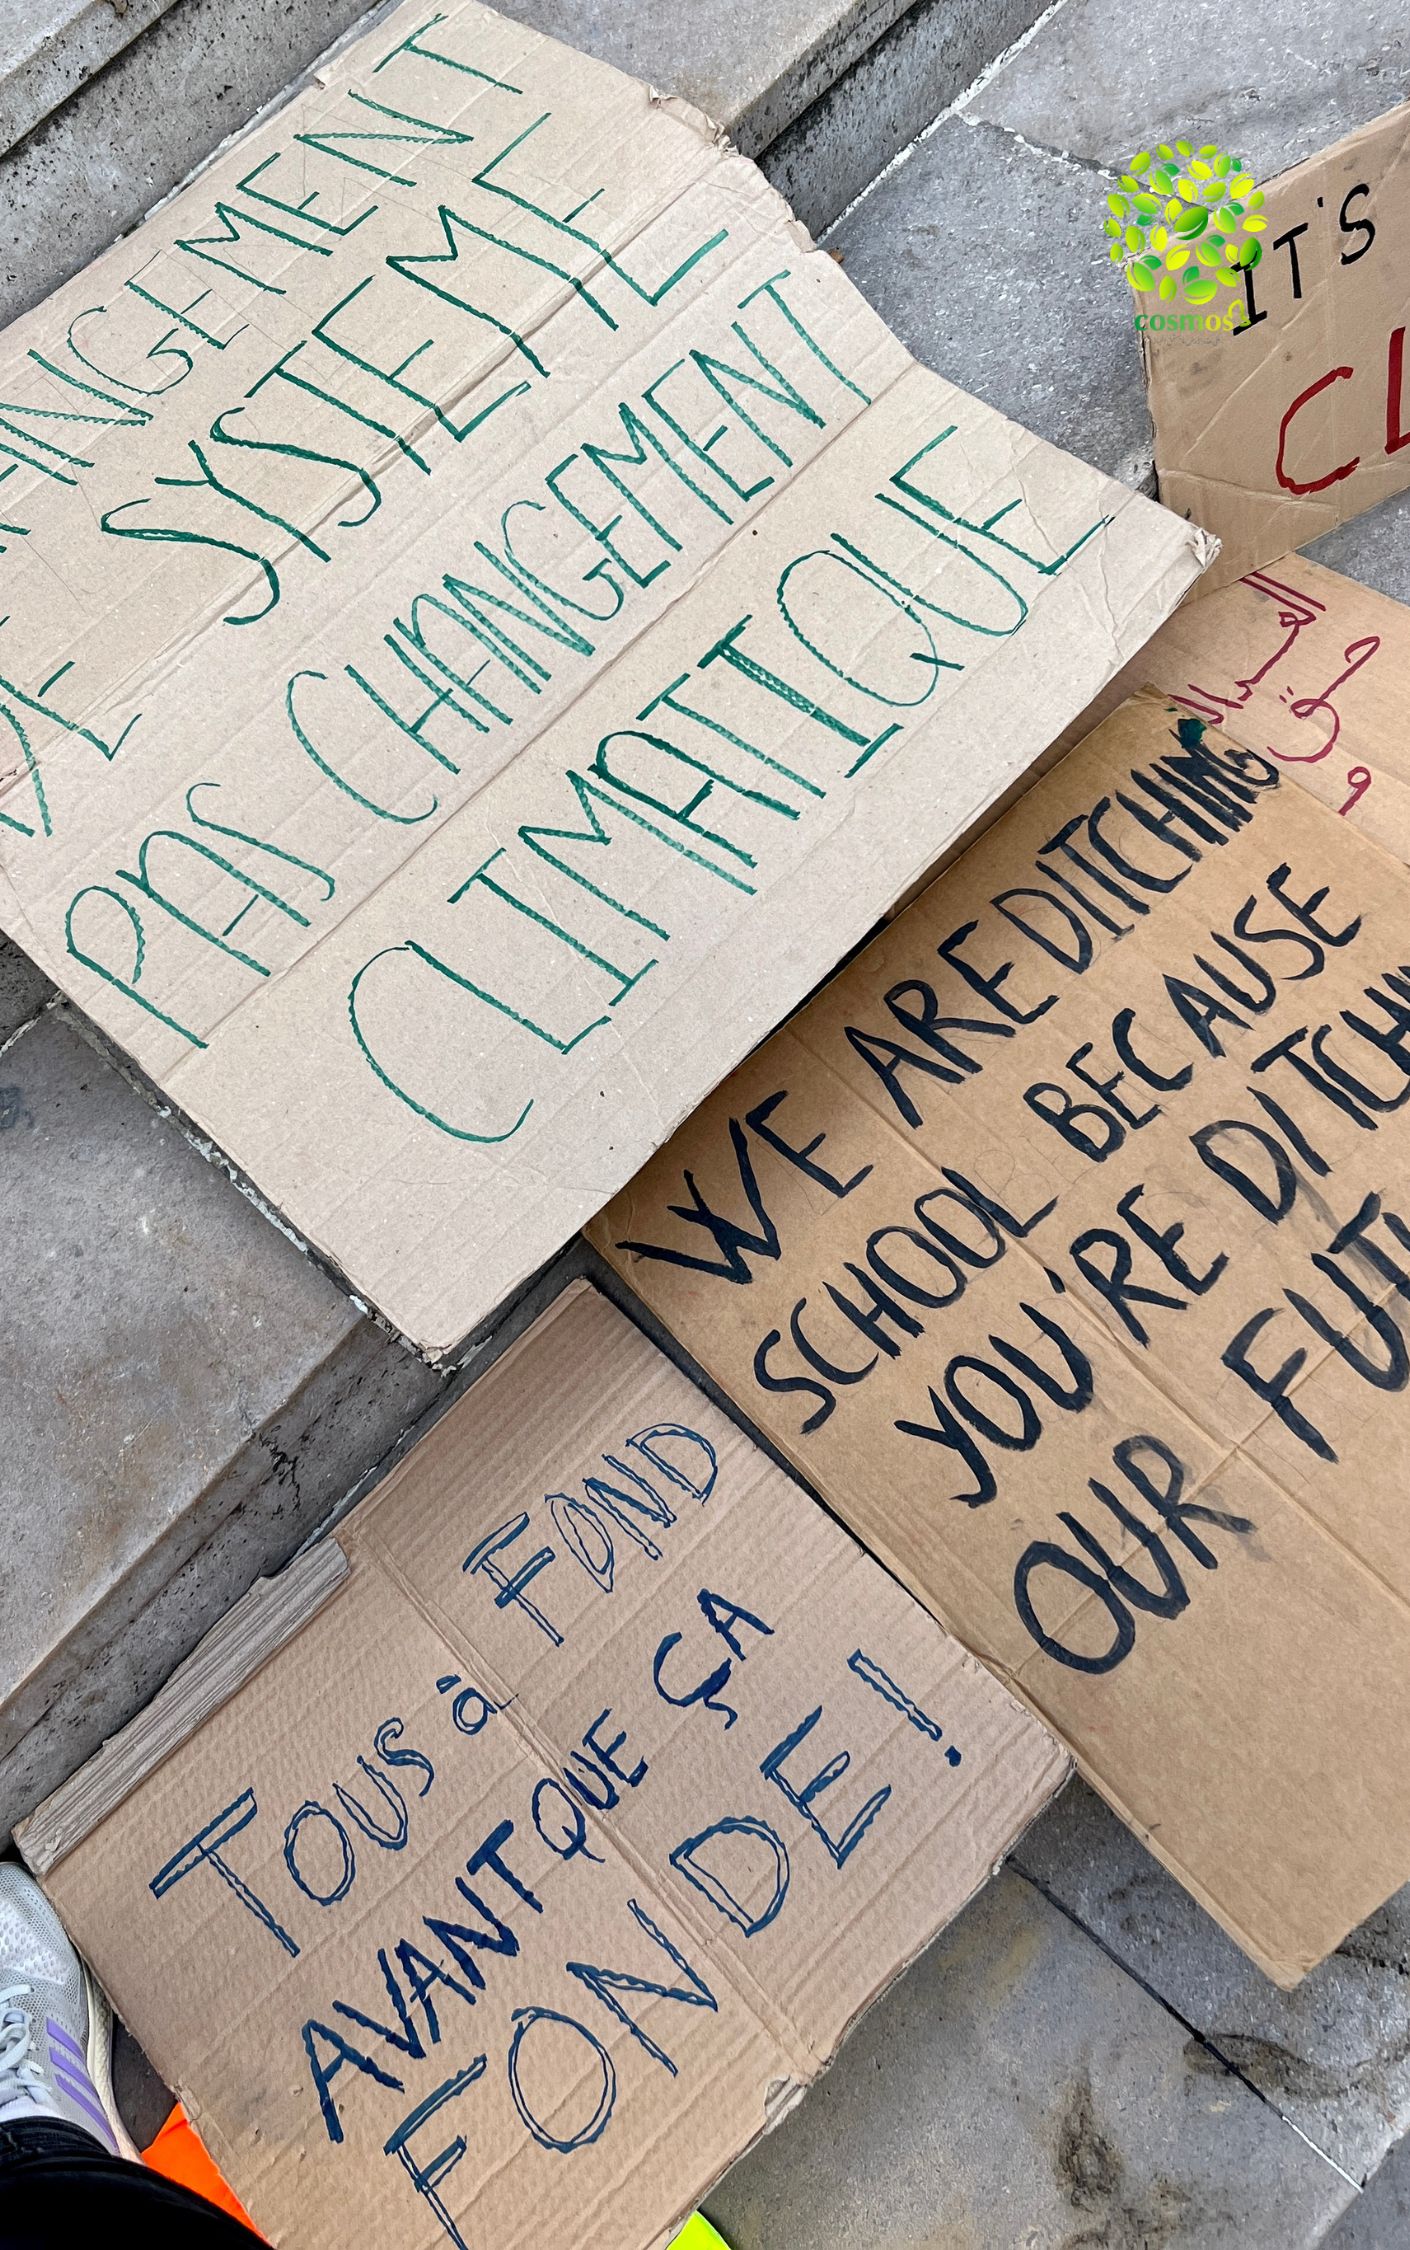 ANGEMENT
DE SYSTEME
PAS CHANGEMENT
CLIMATIQUE
cosmos
IT'S
CL
في
و
WE ARE DITCHING
SCHOOL BECAUSE
YOU'RE DITCHIN
OUR FUTU
TOUS à FOND
AVANT QUE ÇA
FONDE!